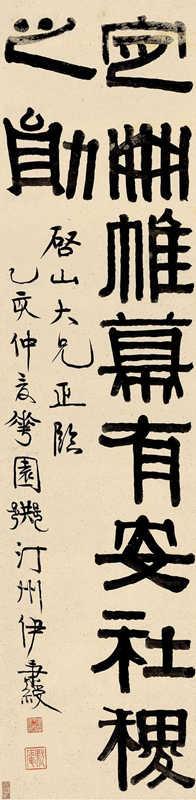 定冊帷幕有安社稷
之勛
啟山大兄正臨
乙亥仲夏園汀州伊秉綬